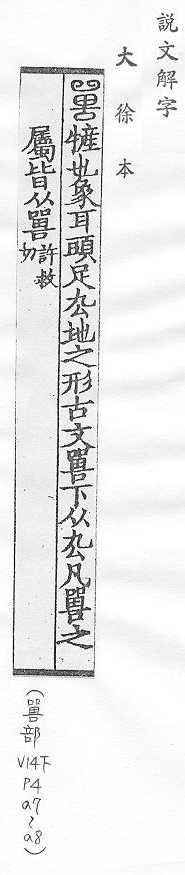 説文解字
大徐本
嘼㹌也象耳頭足厹地之形古文嘼下从厹凡嘼之
屬皆从嘼許救切
(嘼部 V14下 P4 a7~a8)